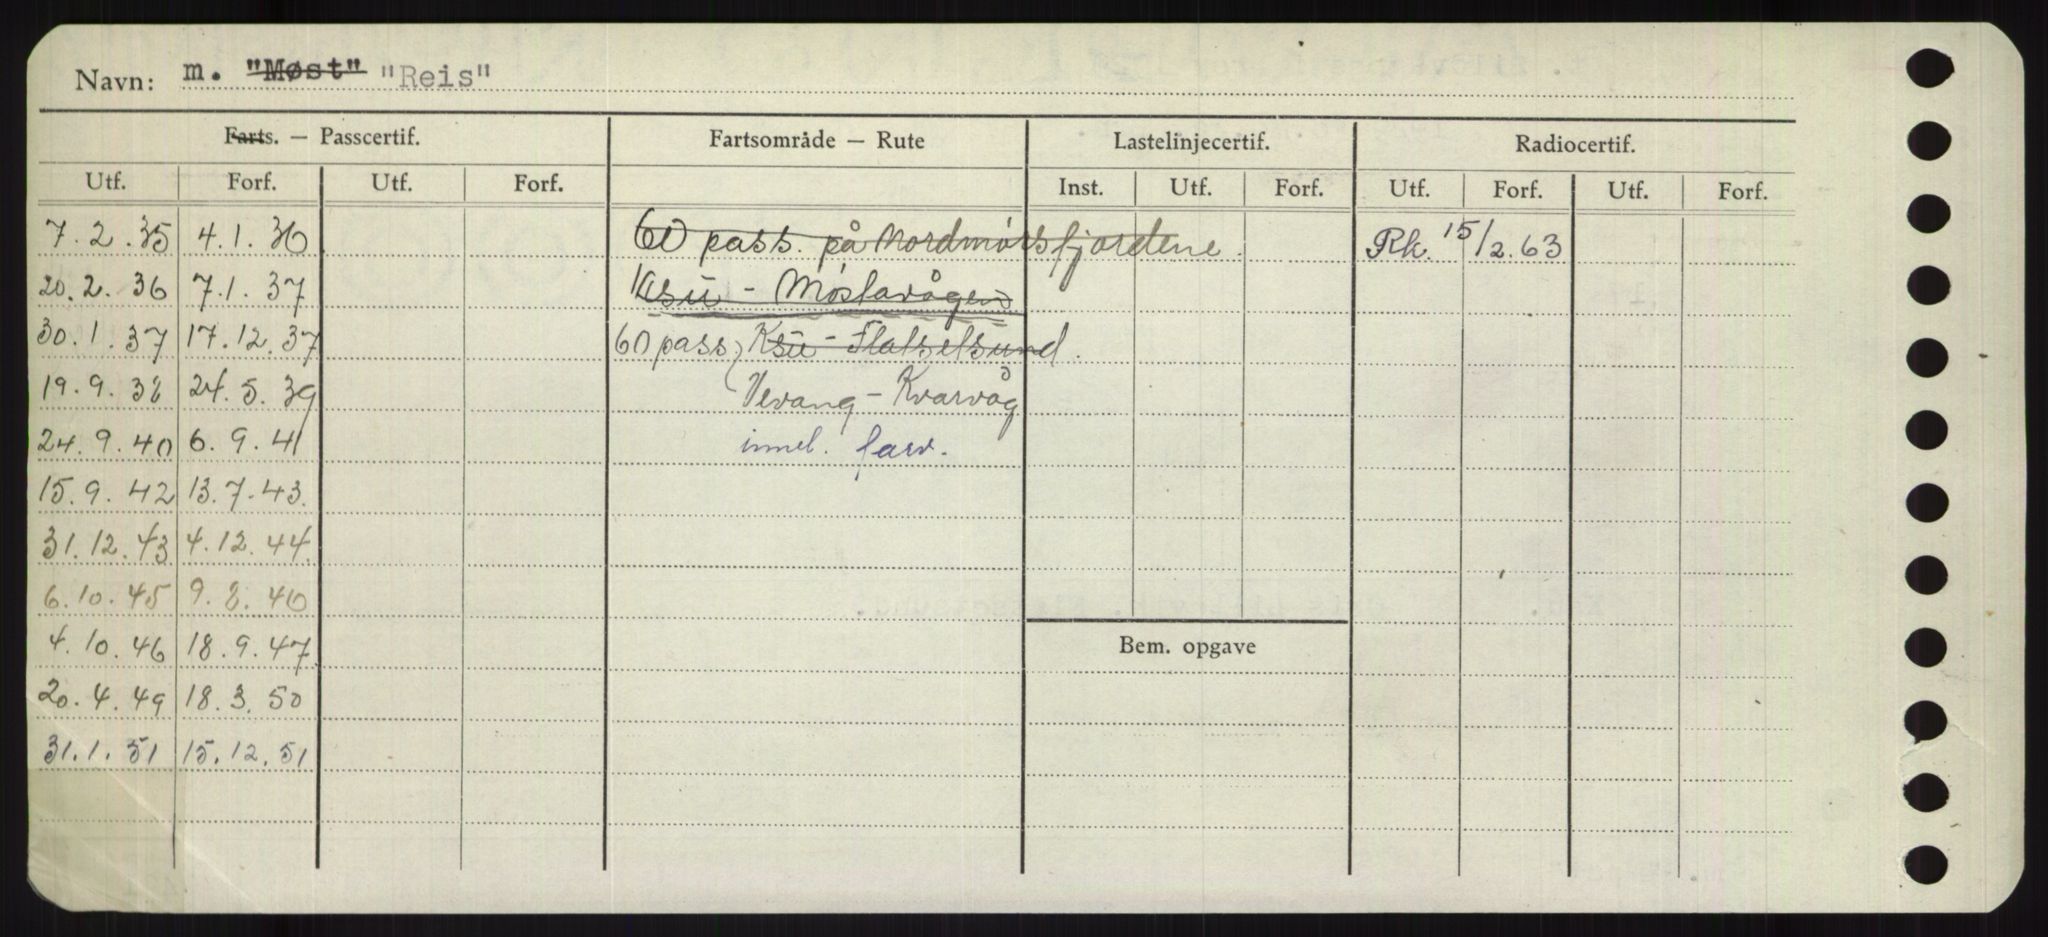 Navn: m. "Møst" "Reis"
Farts. — Passcertif. Fartsområde — Rute Lastelinjecertif. Radiocertif.
Utf. Forf. Utf. Forf. Inst. Utf. Forf. Utf. Forf. Utf. Forf.
7.2.35 4.1.36 60 pass. på Nordmørsfjordene. Rk. 15/2.63
20.2.36 7.1.37 Ksu - Møstavågen
30.1.37 17.12.37 60 pass, Ksu - Flatselsund.
19.9.38 24.5.39 Vevang - Kvarvåg
24.9.40 6.9.41 innel. farv.
15.9.42 13.7.43.
31.12.43 4.12.44
6.10.45 9.8.46
4.10.46 18.9.47
Bem. opgave
20.4.49 18.3.50
31.1.51 15.12.51